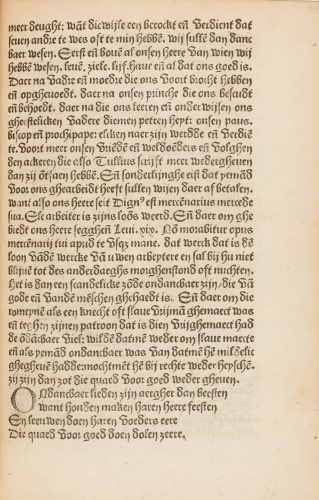 meer deught: wāt dicwijle een berockt eñ verdient dat
seuen andre te wes oft te min hebbē. wij sullē dan danc
baer wesen. Eerst eñ bouē al onsen heere van wien wij
hebbē wesen. leuē, ziele. lijf. haue eñ al dat ons goed is.
Daer na vadre eñ moedre die ons voort brocht hebben
eñ opgheuoedt. daer na onsen prinche die ons besaidt
eñ behoedt. daer na die ons leeren eñ onderwijsen ons
gheestelicken vadere diemen petren heyt: onsen paus.
biscop eñ prochipape: elcken naer zijn werdde eñ verdiē
te. voort meer onsen vriēdē eñ weldoēders eñ volghen
den ackeren die also Tullius scrijst meer wederghcuen
dan zij ōtfaen hebbē. Eñ sonderlinghe eist dat yemād
voor ons ghearbeidt heeft sullen wijen daer af betalen.
want also ons heere seit Dign⁹ est mercenarius mercede
sua. Elc arbeiter is zijns loōs weerd. Eñ daer om ghe
biedt ons heere segghen Leui. xix. Nō morabitur opus
mercēnarij tui apud te vsqz mane. dat werck dat is dē
loon vādē wercke vā u wen arbeytere en sal bij hu niet
blijuē tot des anderdaeghs morghenstond oft nuchten.
Het is dan een scandelicke zōde ondancbaer zijn, die vā
gode eñ vandē mēschen ghehaedt is. Eñ daer om die
romeynē als een knecht oft slaue vrijmā ghemaect was
eñ teghen zijnen patroon dat is dien vrijghemaect had
de ōdācbaer viel: wildē datmē weder om slaue maecte
eñ als yemād ondancbaer was van datmē hē mildelic
ghegheuē hadde: mochtmēt hē bij rechte weder heysschē.
zij zijn dan zot die quaed voor goed weder gheuen.
Ondancbaer lieden zijn aergher dan beesten
want honden maken haren heere feesten
En leeuwen doen haren voeders eere
Die quaed voor goed doen dolen zeere.